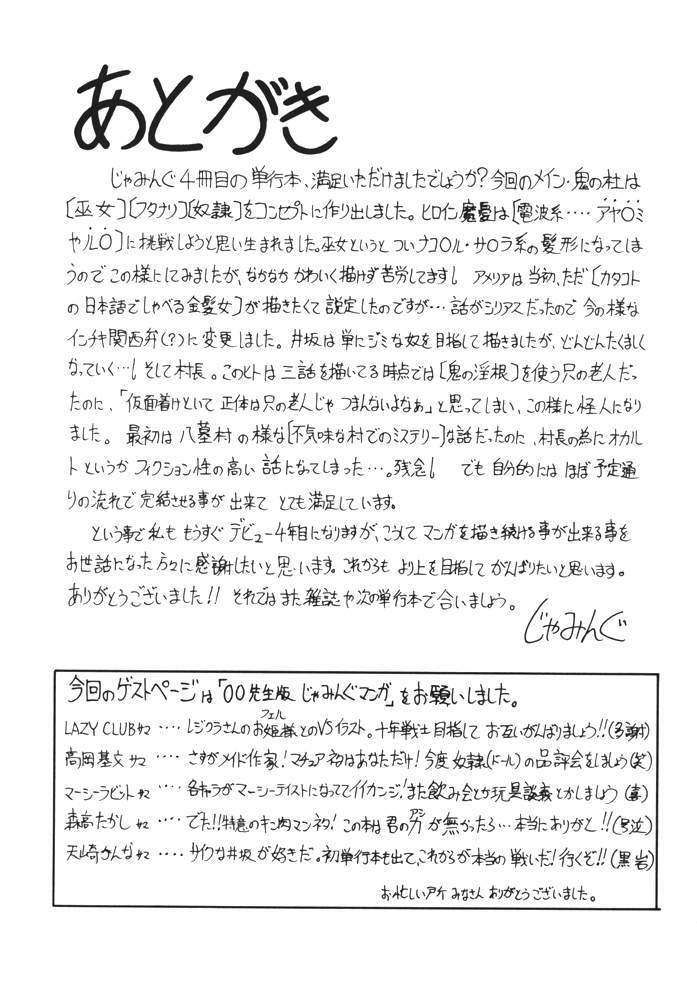 あとがき
じゃみんぐ4冊目の単行本、満足いただけましたでしょうか?今回のメイン・鬼の杜は
[巫女][フタナリ][奴隷]をコンセプトに作り出しました。ヒロイン魔憂は[電波系‥‥アヤ○ミ
やル○]に挑戦しようと思い生まれました。巫女というと ついナコ○ル・サ○ラ系の髪形になってしま
うので この様にしてみましたが、なかなか かわいく描けず苦労してます! アメリアは当初、ただ[カタコト
の日本語でしゃべる金髪女]が描きたくて設定したのですが…話がシリアスだったので 今の様な
インチキ関西弁(?)に変更しました。井坂は単にジミな奴を目指して描きましたが、どんどんたくましく
なっていく…!そして村長。このヒトは三話を描いてる時点では[鬼の淫根]を使う只の老人だっ
たのに、「仮面着けといて 正体は只の老人じゃ つまんないよなぁ」と思ってしまい、この様に怪人になり
ました。最初は 八墓村の様な[不気味な村でのミステリー]な話だったのに、村長の為にオカル
トというか フィクション性の高い話になってしまった…。残念! でも 自分的には ほぼ予定通
りの流れで 完結させる事が 出来て とても満足しています。
という事で私も もうすぐ デビュー4年目になりますが、こうして マンガを描き続ける事が出来る事を
お世話になった方々に感謝したいと思います。これからも より上を目指して がんばりたいと思います。
ありがとうございました!! それではまた雑誌や次の単行本で合いましょう。
じゃみんぐ
今回のゲストページは「○○先生版 じゃみんぐマンガ」をお願いしました。
LAZY CLUBサマ‥‥レジクラさんのお姫様とのVSイラスト。十年戦士目指して お互いがんばりましょう!!(多謝)
フェル
高岡基文サマ‥‥さすがメイド作家!マチュアネタはあなただけ!今度 奴隷(ドール)の品評会をしましょう(笑)
マーシーラビットサマ‥‥各キャラがマーシーテイストになっててイイカンジ!また飲み会とか玩具談義とかしましょう(喜)
森高たかしサマ‥‥でた!!特意のキン肉マンネタ!この本は君の力が無かったら…本当にありがとー!!(号泣)
天崎かんなサマ‥‥サイクな井坂が好きだ。初単行本も出て、これからが本当の戦いだ!行くぞ!!(黒岩)
お忙しい中 みなさん ありがとうございました。